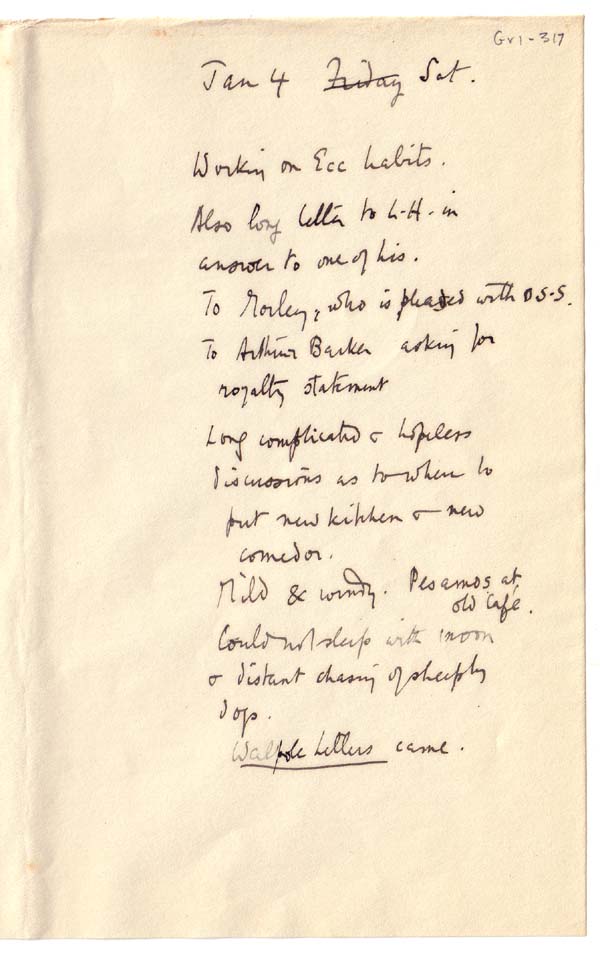 Gv1-317
Jan 4 Friday Sat.
Working on Ecc habits.
Also long letter to L-H- in
answer to one of his.
To Morley, who is pleased with S-S.
To Arthur Barker asking for
royalty statement
Long complicated & hopeless
discussions as to where to
put new kitchen & new
comedor.
Mild & windy. Pesamos at
old Café.
Could not sleep with moon
& distant chasing of sheep by
dogs.
Walpole Letters came.